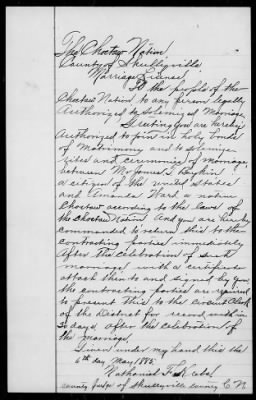 The Choctaw Nation
County of Skullyville
Marriage License
To the people of the
Choctaw Nation to any person legally
Authorized to solemnize Marriage,
Greeting you are hereby
Authorized to join in holy bonds
of Matrimony and to solemnize
rites and ceremonies of marriage,
between Mr James
a citizen of the united states
and Amanda Ward a native
Choctaw according to the laws of
the choctaw Nation And you are hereby
commanded to return this to the
contracting parties immediately
After the celebration of such
marriage with a certificate
attach thereto and signed by you
the contracting parties are required
to present this to the circuit Clerk
of the District for record within
30 days after the celebration of
the marriage.
Given under my hand this the
6th day May 1885.
Nathaniel F. Krebs
county Judge of Skullyville county C N